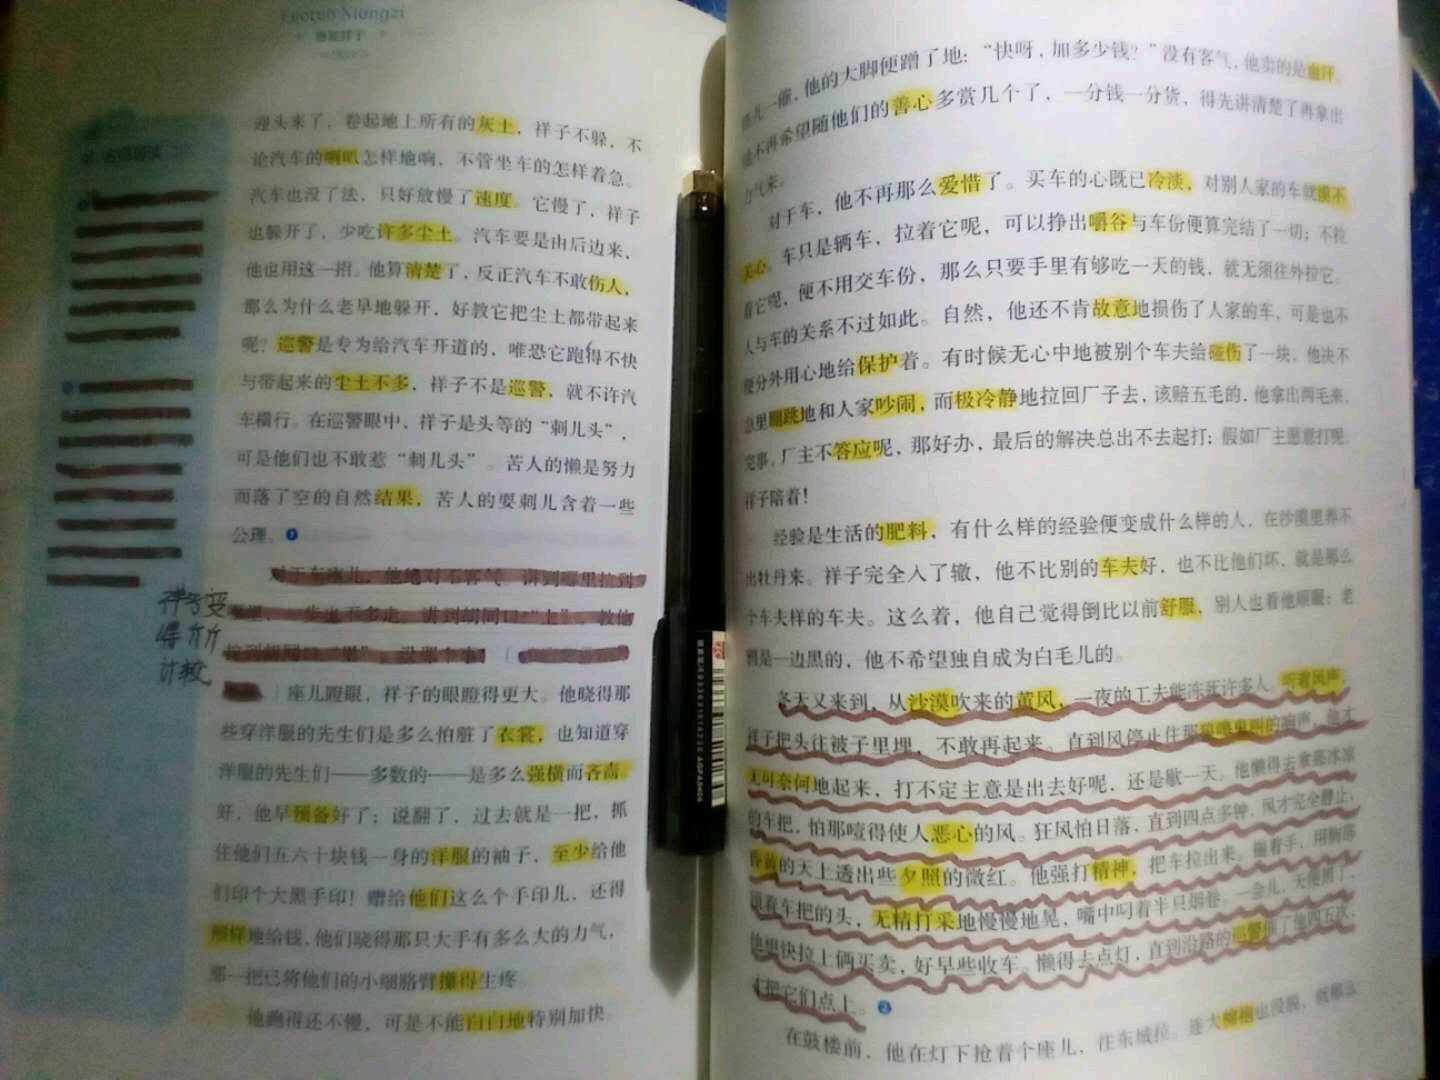 Luotuo Xiangzi
骆驼祥子
迎头来了，卷起地上所有的灰土，祥子不躲，不
论汽车的喇叭怎样地响，不管坐车的怎样着急。
汽车也没了法，只好放慢了速度。它慢了，祥子
也躲开了，少吃许多尘土。汽车要是由后边来，
他也用这一招。他算清楚了，反正汽车不敢伤人，
那么为什么老早地躲开，好教它把尘土都带起来
呢？巡警是专为给汽车开道的，唯恐它跑得不快
与带起来的尘土不多，祥子不是巡警，就不许汽
车横行。在巡警眼中，祥子是头等的“刺儿头”，
可是他们也不敢惹“刺儿头”。苦人的懒是努力
而落了空的自然结果，苦人的耍刺儿含着一些
公理。1
对于车座儿，他绝对不客气。讲到哪里拉到
哪里，一步也不多走。讲到胡同口“上”，教他
拉到胡同口“里”，没那个事！
座儿瞪眼，祥子的眼瞪得更大。他晓得那
些穿洋服的先生们是多么怕脏了衣裳，也知道穿
洋服的先生们——多数的——是多么强横而吝啬。
好，他早预备好了；说翻了，过去就是一把，抓
住他们五六十块钱一身的洋服的袖子，至少给他
们印个大黑手印！赠给他们这么个手印儿，还得
照样地给钱，他们晓得那只大手有多么大的力气，
那一把已将他们的小细胳臂攥得生疼。
他跑得还不慢，可是不能白白地特别加快。
祥子变
得斤斤
计较
座儿一催，他的大脚便蹭了地：“快呀，加多少钱？”没有客气，他卖的是血汗。
他不再希望随他们的善心多赏几个了，一分钱一分货，得先讲清楚了再拿出
力气来。
对于车，他不再那么爱惜了。买车的心既已冷淡，对别人家的车就漠不
关心。车只是辆车，拉着它呢，可以挣出嚼谷与车份便算完结了一切；不拉
着它呢，便不用交车份，那么只要手里有够吃一天的钱，就无须往外拉它。
人与车的关系不过如此。自然，他还不肯故意地损伤了人家的车，可是也不
便分外用心地给保护着。有时候无心中地被别个车夫给碰伤了一块，他决不
急里蹦跳地和人家吵闹，而极冷静地拉回厂子去，该赔五毛的，他拿出两毛来，
完事。厂主不答应呢，那好办，最后的解决总出不去起打；假如厂主愿意打呢，
祥子陪着！
经验是生活的肥料，有什么样的经验便变成什么样的人，在沙漠里养不
出牡丹来。祥子完全入了辙，他不比别的车夫好，也不比他们坏，就是那么
个车夫样的车夫。这么着，他自己觉得倒比以前舒服，别人也看他顺眼；老
鸦是一边黑的，他不希望独自成为白毛儿的。
冬天又来到，从沙漠吹来的黄风，一夜的工夫能冻死许多人。听着风声，
祥子把头往被子里埋，不敢再起来。直到风停止住那狼嗥鬼叫的响声，他才
无可奈何地起来，打不定主意是出去好呢，还是歇一天。他懒得去拿那冰凉
的车把，怕那噎得使人恶心的风。狂风怕日落，直到四点多钟，风才完全静止，
昏黄的天上透出些夕照的微红。他强打精神，把车拉出来。揣着手，用胸部
顶着车把的头，无精打采地慢慢地晃，嘴中叼着半只烟卷。一会儿，天便黑了，
他想快拉上俩买卖，好早些收车。懒得去点灯，直到沿路的巡警催了他四五次，
才把它们点上。2
在鼓楼前，他在灯下抢着个座儿，往东城拉。连大棉袍也没脱，就那么